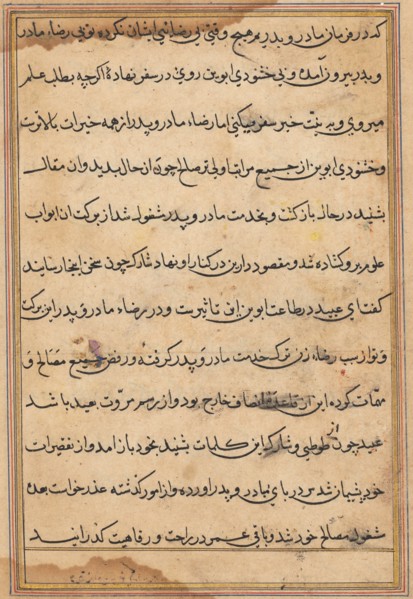 که در فرمان مادر و پدر بود هیچ وقتی بی رضاء ایشان نکرده تو بی رضاء مادر
و پدر بیرون آمده و بی خشنودی ابوین روی در سفر نهاده اگرچه بطلب علم
میروی و به نیت خیر سفر میکنی اما رضاء مادر و پدر از همه خیرات بالاترست
و خشنودی ابوین از جمیع مراتب اولیتر صالح چون از حال بدید و ان مقال
بشنید در حال بازگشت و بخدمت مادر و پدر مشغول شد از برکت ان ابواب
علوم برو گشاده شد و مقصود دارین در کنار او نهاد شارک چون سخن اینجا رسانید
گفت ای عبید در طاعت ابوین این تاثیرست و در رضاء مادر و پدر این برکت
و تو از سبب رضاء زن ترک خدمت مادر و پدر گرفته و رفض جمیع مصالح و
مهمات کرده این از قاعده انصاف خارج بود و از رسم مروت بعید باشد
عبید چون از طوطی و شارک این کلمات بشنید بخود باز امد و از تقصیرات
خود پشیمان شد سر در پای مادر و پدر اورده و از امور گذشته عذر خواست بعده
مشغول مصالح خود شد و باقی عمر در راحت و رفاهیت گذرانید